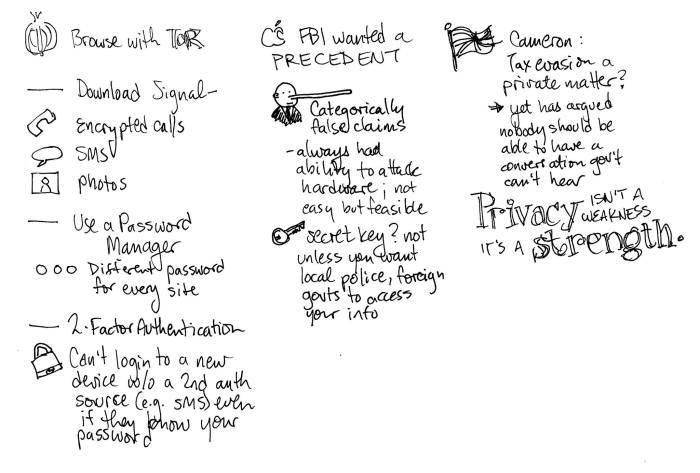 Browse with TOR
— Download Signal –
Encrypted calls
SMS
photos
— Use a Password
Manager
Different password
for every site
— 2-Factor Authentication
Can't login to a new
device w/o a 2nd auth
source (e.g. SMS) even
if they know your
password
FBI wanted a
PRECEDENT
Categorically
false claims
- always had
ability to attack
hardware; not
easy but feasible
secret key? not
unless you want
local police, foreign
govts to access
your info
Cameron:
Tax evasion a
private matter?
→ yet has argued
nobody should be
able to have a
conversation gov't
can't hear
Privacy ISN'T A
WEAKNESS
IT'S A strength.